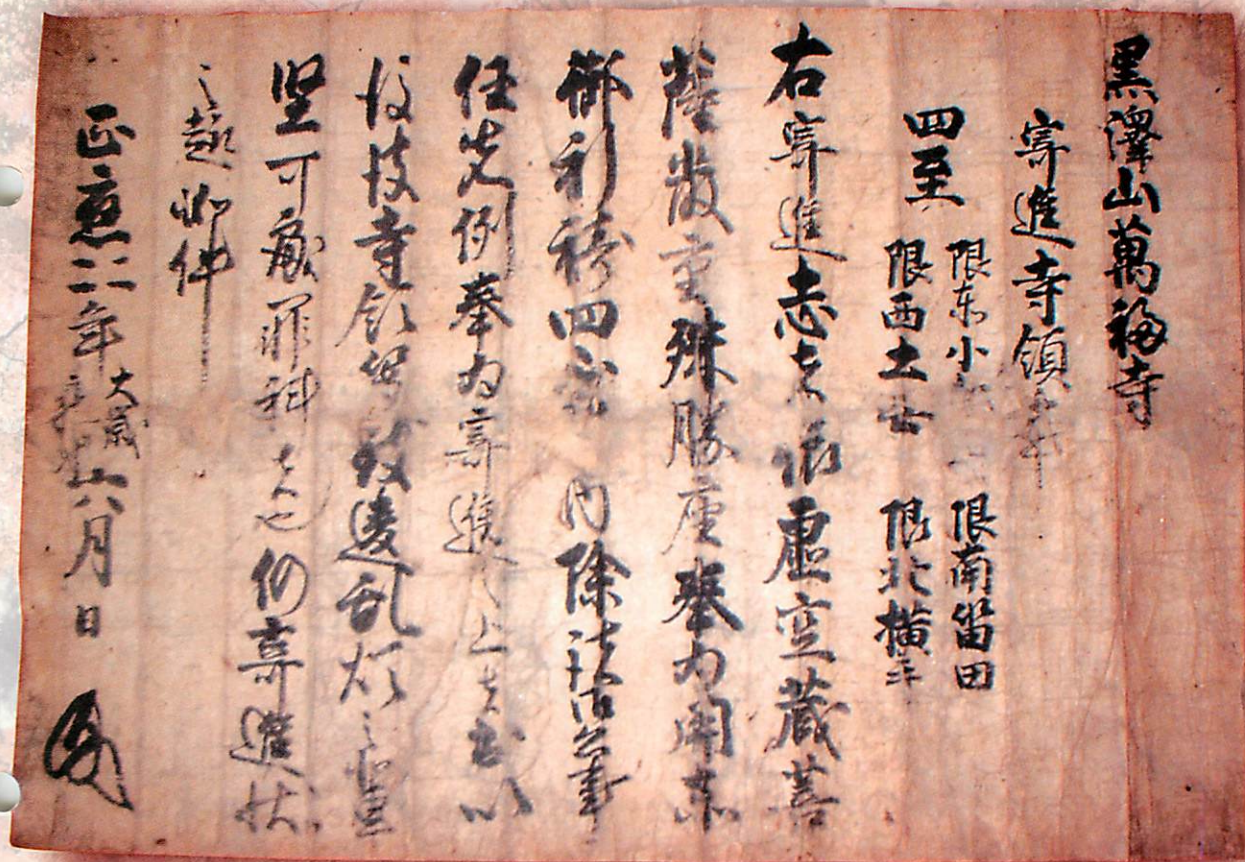 黒澤山萬福寺
寄進寺領事
四至 限東小 限南笛田
限西土 限北横
右寄進志者依虚空蔵菩
薩殊勝座奉為関東
御祈祷四至内除諸公事
任先例奉為寄進之上者於以
後彼寺領致違乱煩之輩
堅可罪科者也仍寄進状
之趣如件
正應二二年大歳八月日